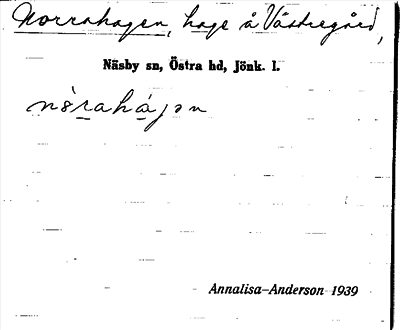 Norrahagen, hage å Västregård,
Näsby sn, Östra hd, Jönk. l.
nòrahágən
Annalisa-Anderson 1939